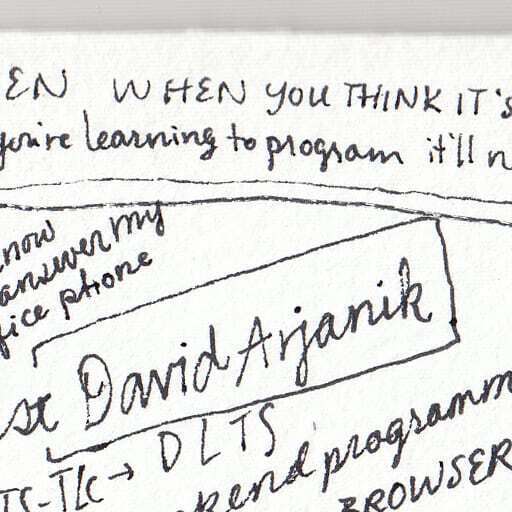 EN WHEN YOU THINK IT'S
you're learning to program it'll n
now
answer my
fice phone
st David Arjanik
TS-TLC → DLTS
kend programm
BROWSER